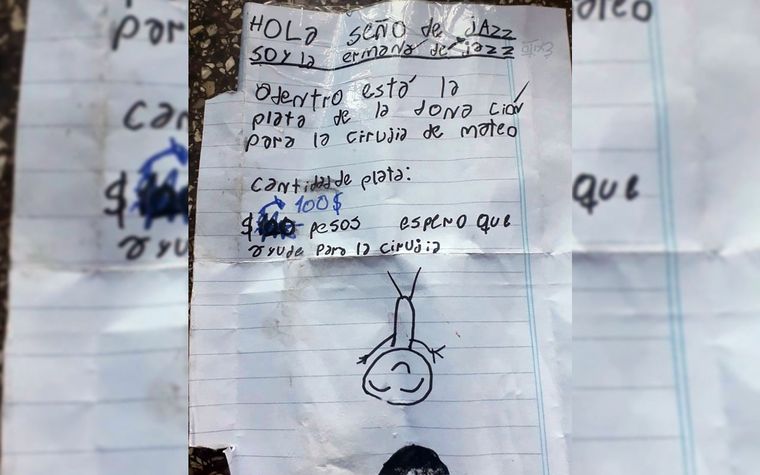 HOLA SEÑO de JAZZ
SOY la ermana de jazz
adentro está la
plata de la dona ción
para la cirujia de mateo
cantidad de plata:
100$
$ pesos espero que
ayude para la cirujia